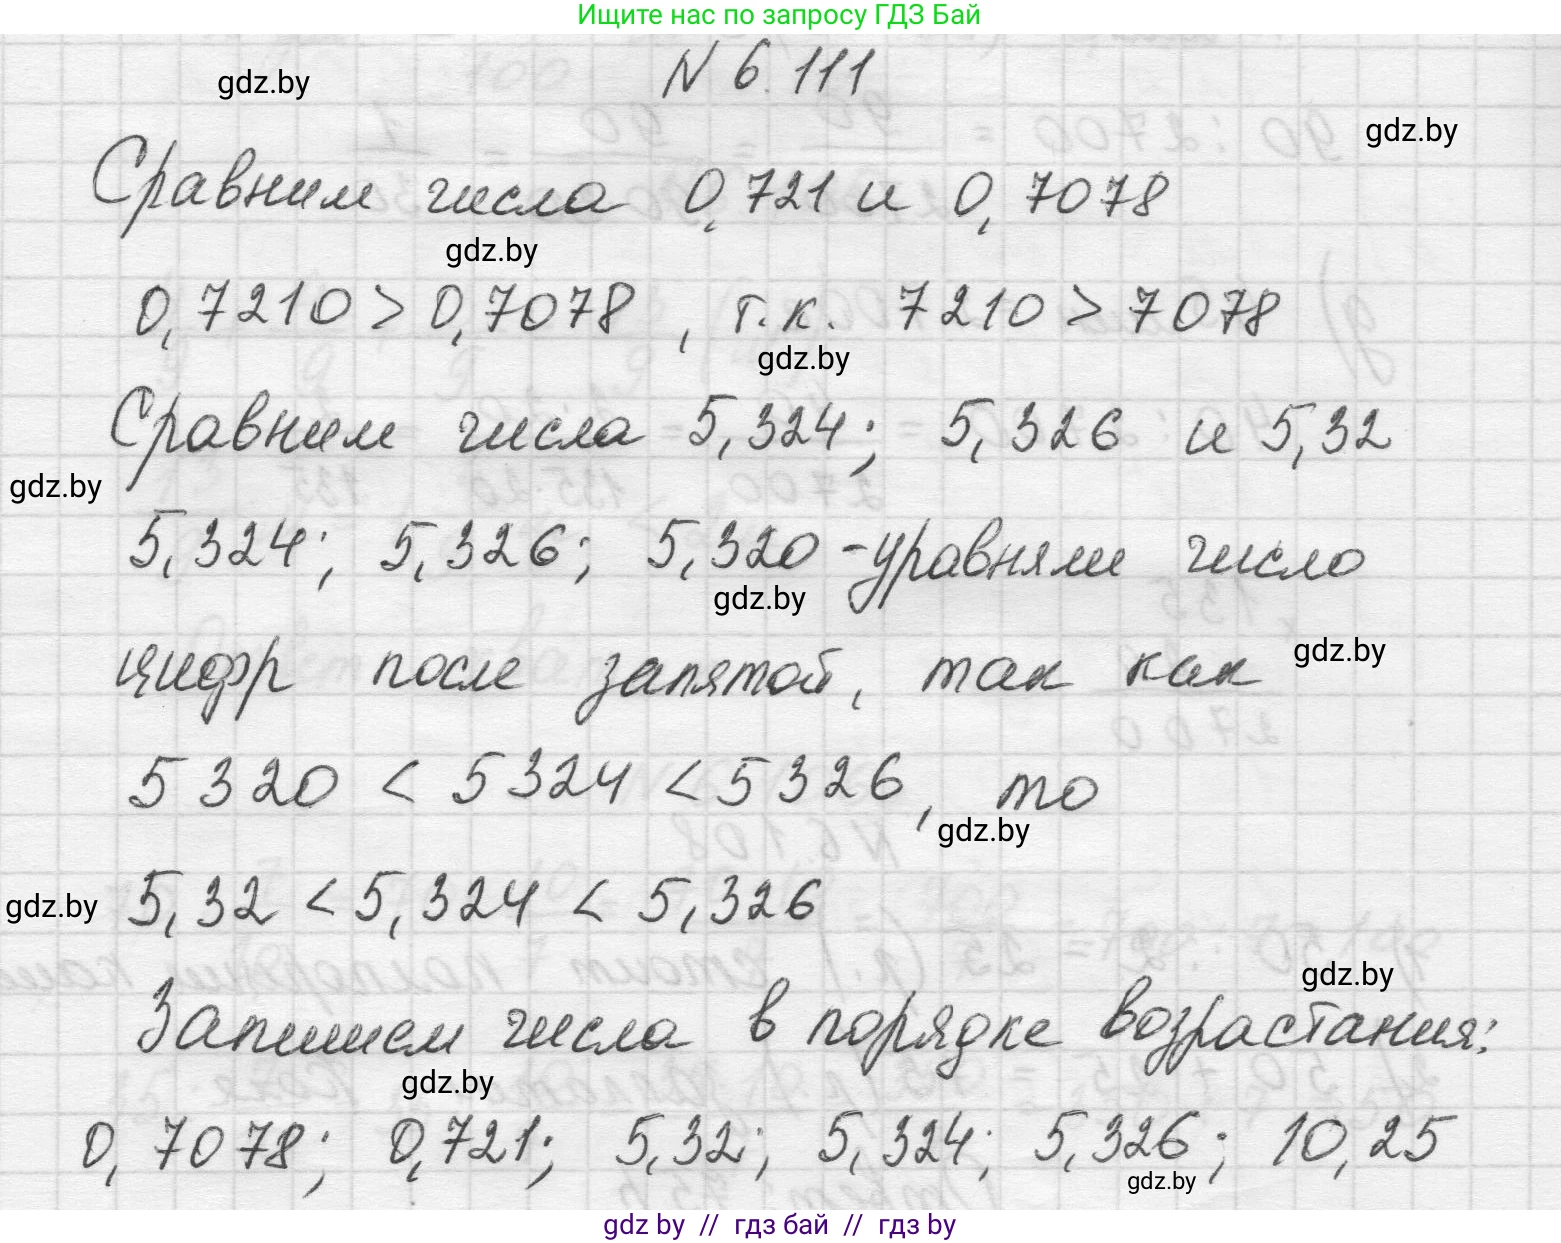 Ищите нас по запросу ГДЗ Бай
N 6.111
gdz.by
gdz.by
Сравним числа 0,721 и 0,7078
gdz.by
0,7210 > 0,7078, т.к. 7210 > 7078
gdz.by
Сравним числа 5,324; 5,326 и 5,32
gdz.by
5,324; 5,326; 5,320 - уравняли число
gdz.by
цифр после запятой, так как
gdz.by
5320 < 5324 < 5326, то
gdz.by
5,32 < 5,324 < 5,326
gdz.by
gdz.by
Запишем числа в порядке возрастания:
gdz.by
0,7078; 0,721; 5,32; 5,324; 5,326; 10,25
gdz.by
gdz by // гдз бай // гдз by